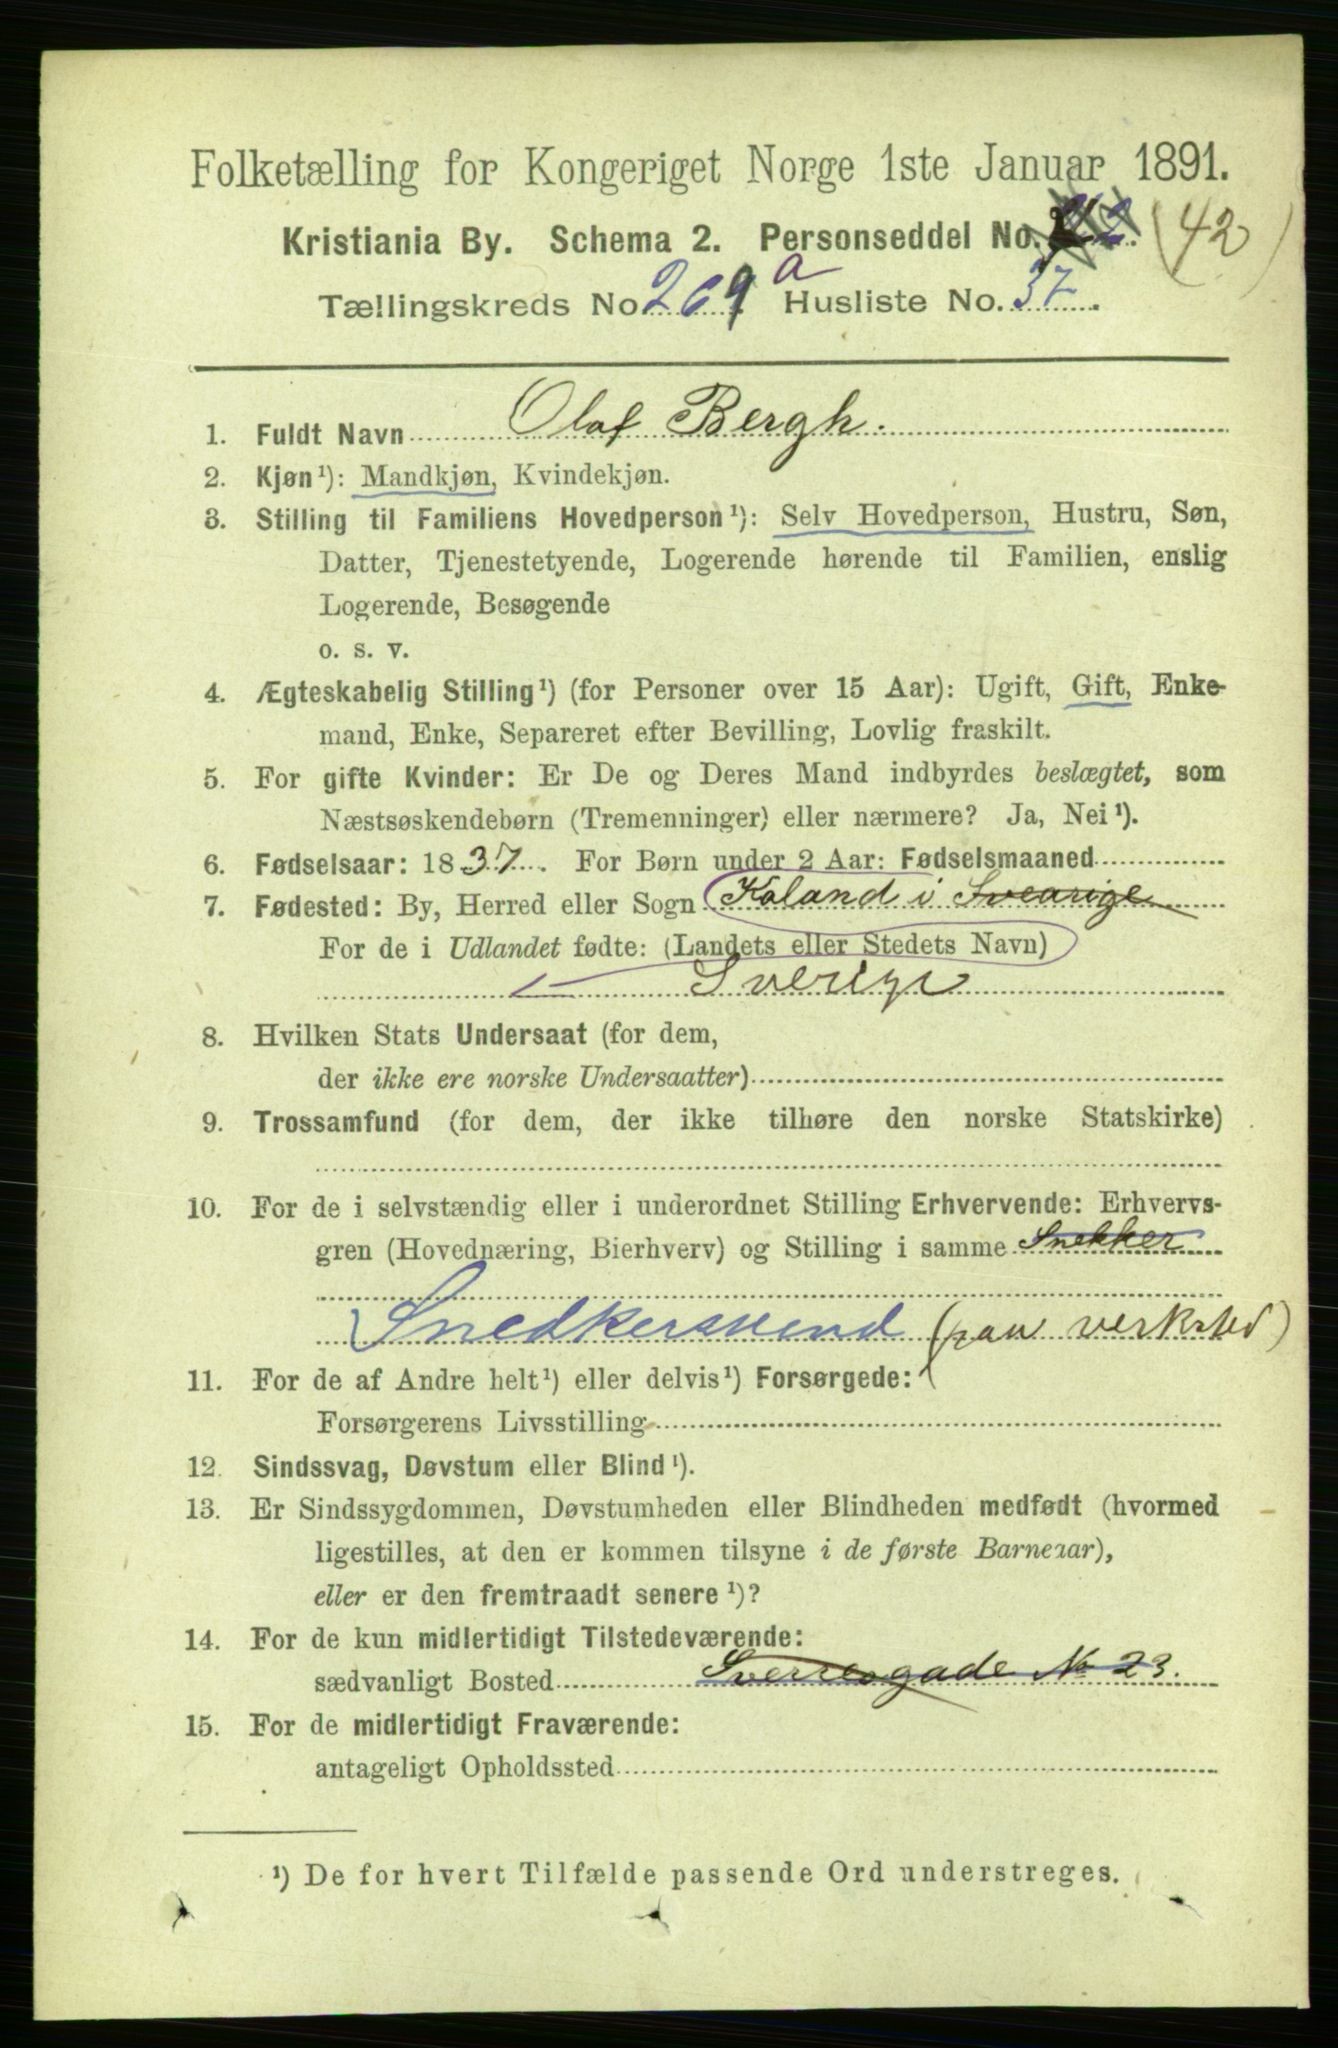 Folketælling for Kongeriget Norge 1ste Januar 1891.
Kristiania By. Schema 2. Personseddel No. (42)
Tællingskreds No 269 a Husliste No. 37.
1. Fuldt Navn Olaf Bergh.
2. Kjøn¹): Mandkjøn, Kvindekjøn.
3. Stilling til Familiens Hovedperson¹): Selv Hovedperson, Hustru, Søn,
Datter, Tjenestetyende, Logerende hørende til Familien, enslig
Logerende, Besøgende
o. s. v.
4. Ægteskabelig Stilling¹) (for Personer over 15 Aar): Ugift, Gift, Enke-
mand, Enke, Separeret efter Bevilling, Lovlig fraskilt.
5. For gifte Kvinder: Er De og Deres Mand indbyrdes beslægtet, som
Næstsøskendebørn (Tremenninger) eller nærmere? Ja, Nei¹).
6. Fødselsaar: 1837. For Børn under 2 Aar: Fødselsmaaned
7. Fødested: By, Herred eller Sogn Koland i Svearige
For de i Udlandet fødte: (Landets eller Stedets Navn)
Sverige
8. Hvilken Stats Undersaat (for dem,
der ikke ere norske Undersaatter)
9. Trossamfund (for dem, der ikke tilhøre den norske Statskirke)
10. For de i selvstændig eller i underordnet Stilling Erhvervende: Erhvervs-
gren (Hovednæring, Bierhverv) og Stilling i samme Snekker
Snedkersvend (paa verksted)
11. For de af Andre helt¹) eller delvis¹) Forsørgede:
Forsørgerens Livsstilling
12. Sindssvag, Døvstum eller Blind¹).
13. Er Sindssygdommen, Døvstumheden eller Blindheden medfødt (hvormed
ligestilles, at den er kommen tilsyne i de første Barneaar),
eller er den fremtraadt senere¹)?
14. For de kun midlertidigt Tilstedeværende:
sædvanligt Bosted Sverresgade No 23.
15. For de midlertidigt Fraværende:
antageligt Opholdssted
¹) De for hvert Tilfælde passende Ord understreges.